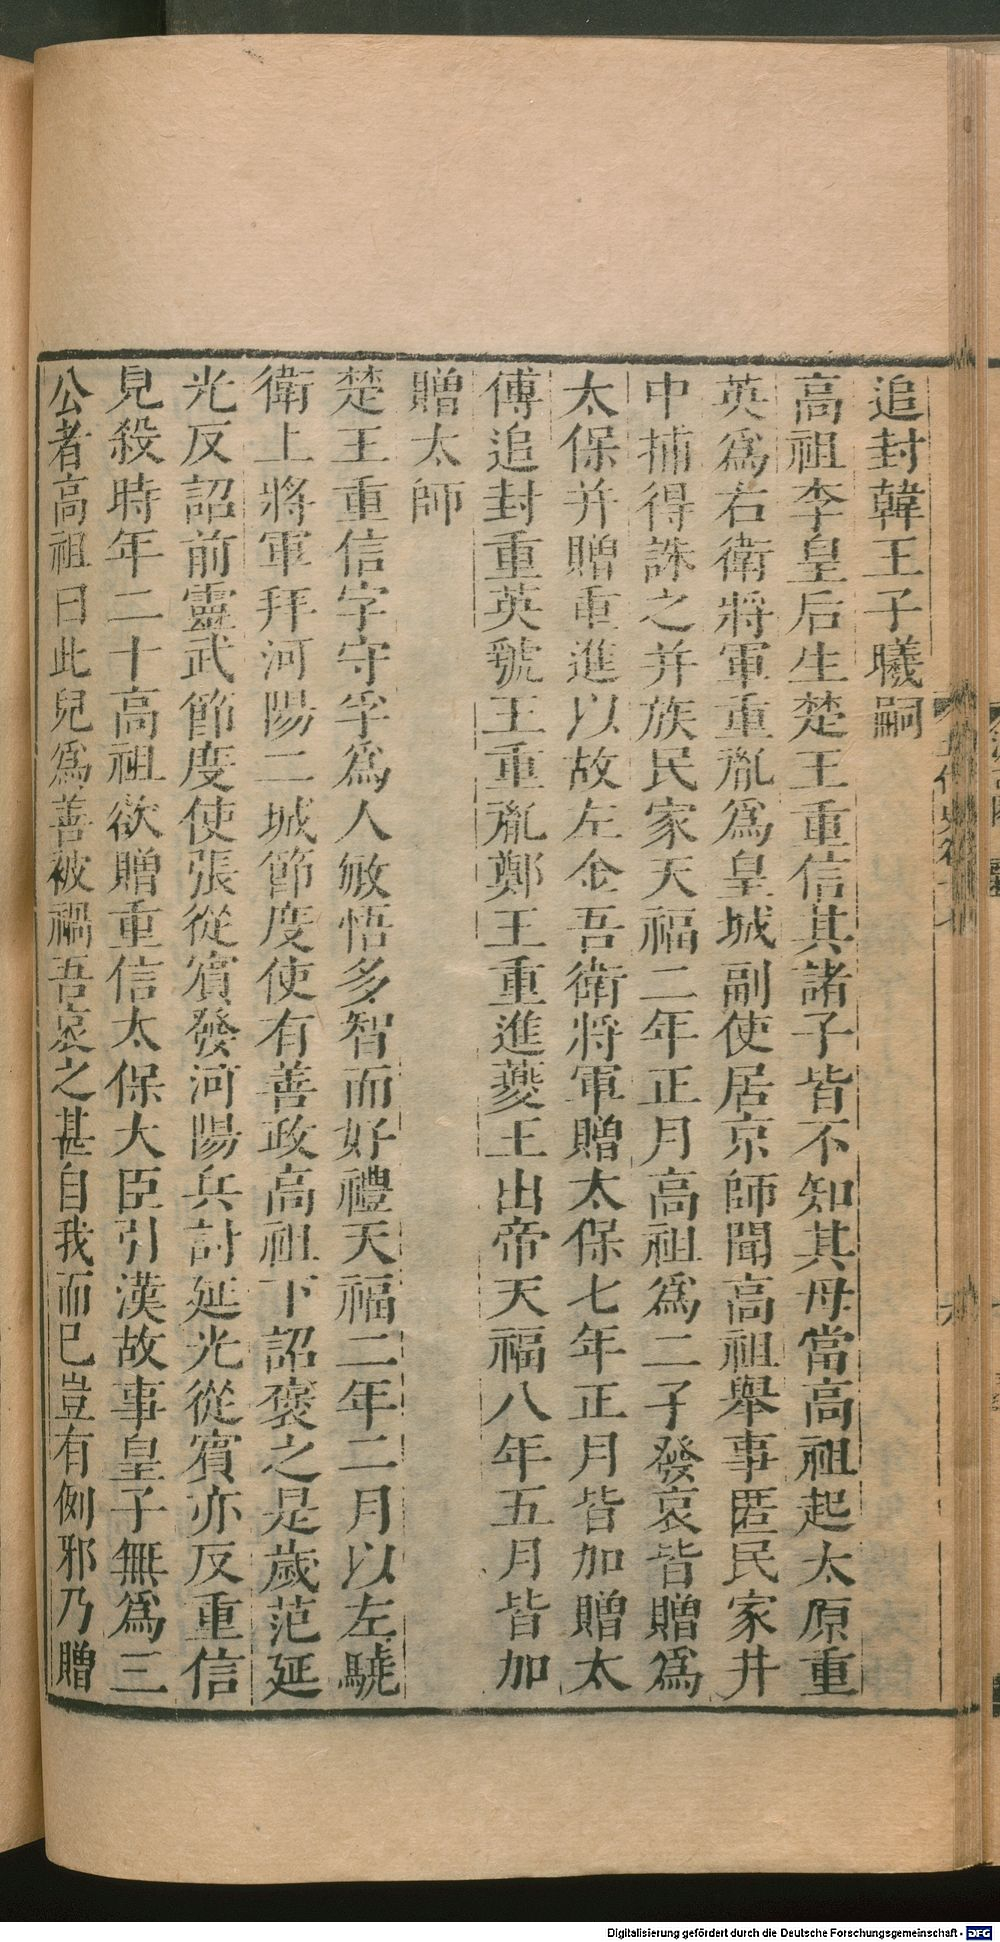 追封韓王子曦嗣
高祖李皇后生楚王重信其諸子皆不知其母當高祖起太原重
英爲右衛將軍重胤爲皇城副使居京師聞高祖舉事匿民家井
中捕得誅之并族民家天福二年正月高祖爲二子發哀皆贈爲
太保并贈重進以故左金吾衛將軍贈太保七年正月皆加贈太
傅追封重英虢王重胤鄭王重進夔王出帝天福八年五月皆加
贈太師
楚王重信字守孚爲人敏悟多智而好禮天福二年二月以左驍
衛上將軍拜河陽三城節度使有善政高祖下詔褒之是歲范延
光反詔前靈武節度使張從賓發河陽兵討延光從賓亦反重信
見殺時年二十高祖欲贈重信太保大臣引漢故事皇子無爲三
公者高祖曰此兒爲善被禍吾哀之甚自我而已豈有例邪乃贈
Digitalisierung gefördert durch die Deutsche Forschungsgemeinschaft - DFG